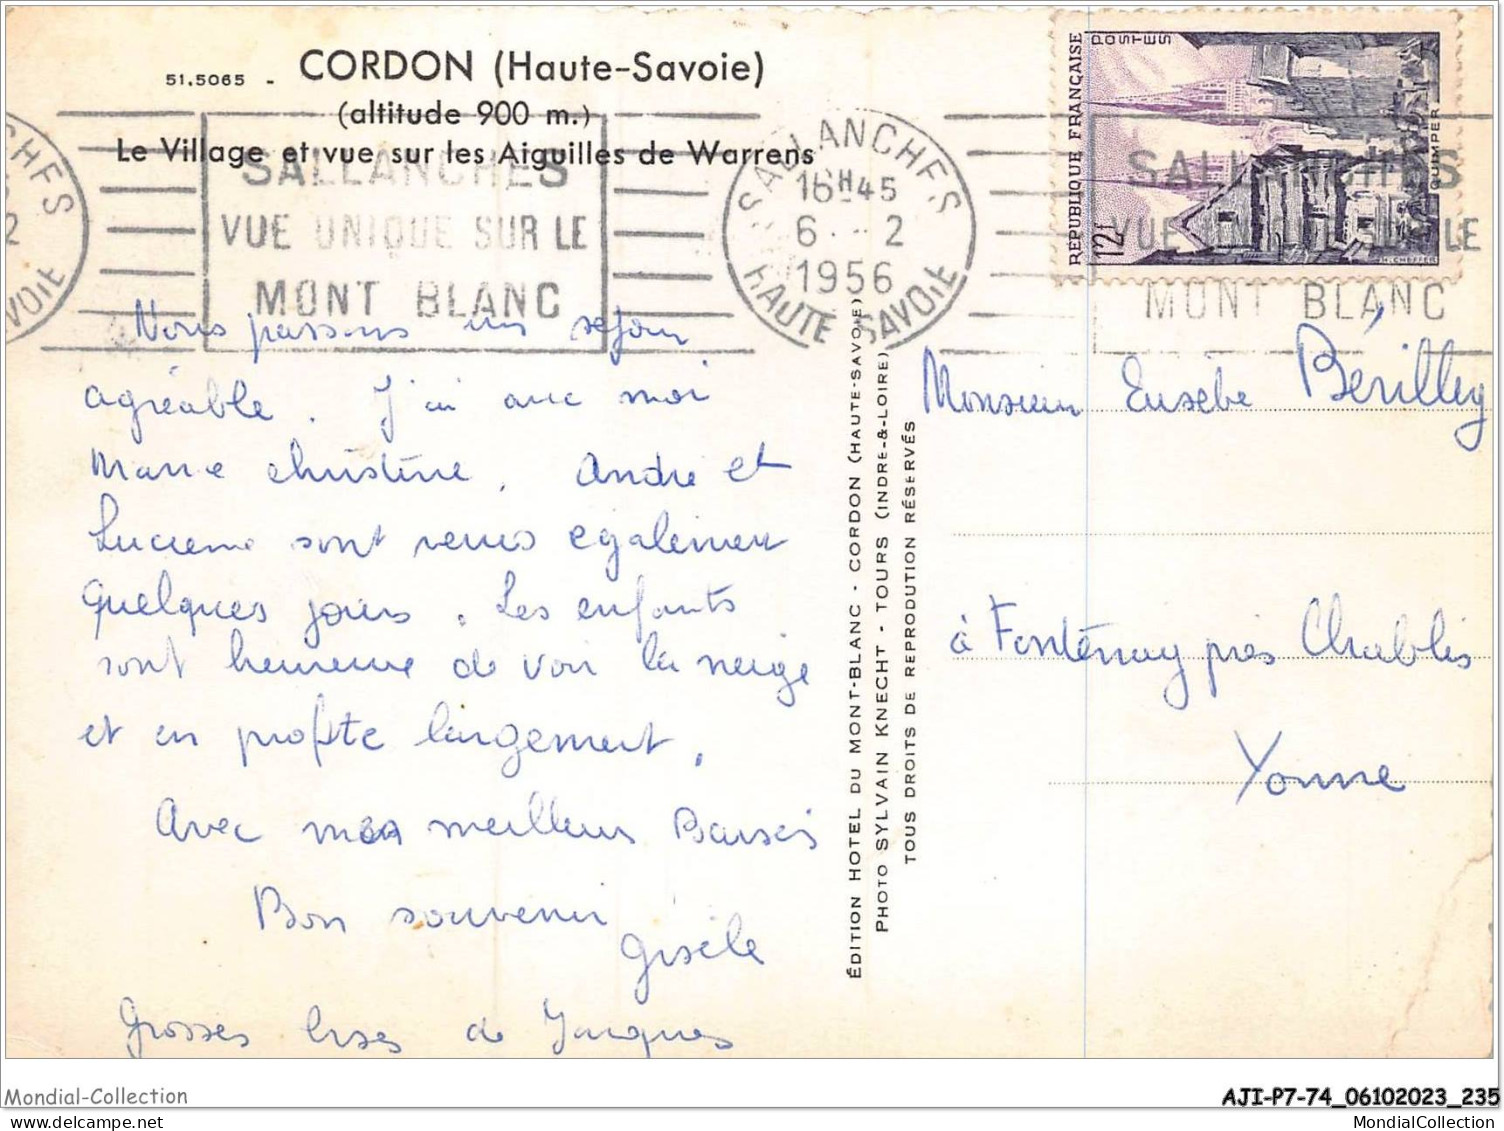 51.5065 - CORDON (Haute-Savoie)
(altitude 900 m.)
Le Village et vue sur les Aiguilles de Warrens
SALLANCHES
VUE UNIQUE SUR LE
MONT BLANC
SALLANCHES
16H45
6 - 2
1956
HAUTE SAVOIE
RÉPUBLIQUE FRANÇAISE
POSTES
12F
QUIMPER
SALLANCHES
VUE UNIQUE SUR LE
MONT BLANC
Nous passons un séjour
agréable. J'ai avec moi
Marie christine, André et
Lucienne sont venus également
quelques jours. Les enfants
sont heureux de voir la neige
et en profite largement,
Avec mes meilleurs Baisers
Bon souvenir
Gisèle
Grosses bises de Jacques
ÉDITION HOTEL DU MONT-BLANC - CORDON (HAUTE-SAVOIE)
PHOTO SYLVAIN KNECHT - TOURS (INDRE-&-LOIRE)
TOUS DROITS DE REPRODUCTION RÉSERVÉS
Monsieur Eusèbe Bérilley
à Fontenay près Chablis
Yonne
Mondial-Collection
AJI-P7-74_06102023_235
MondialCollection